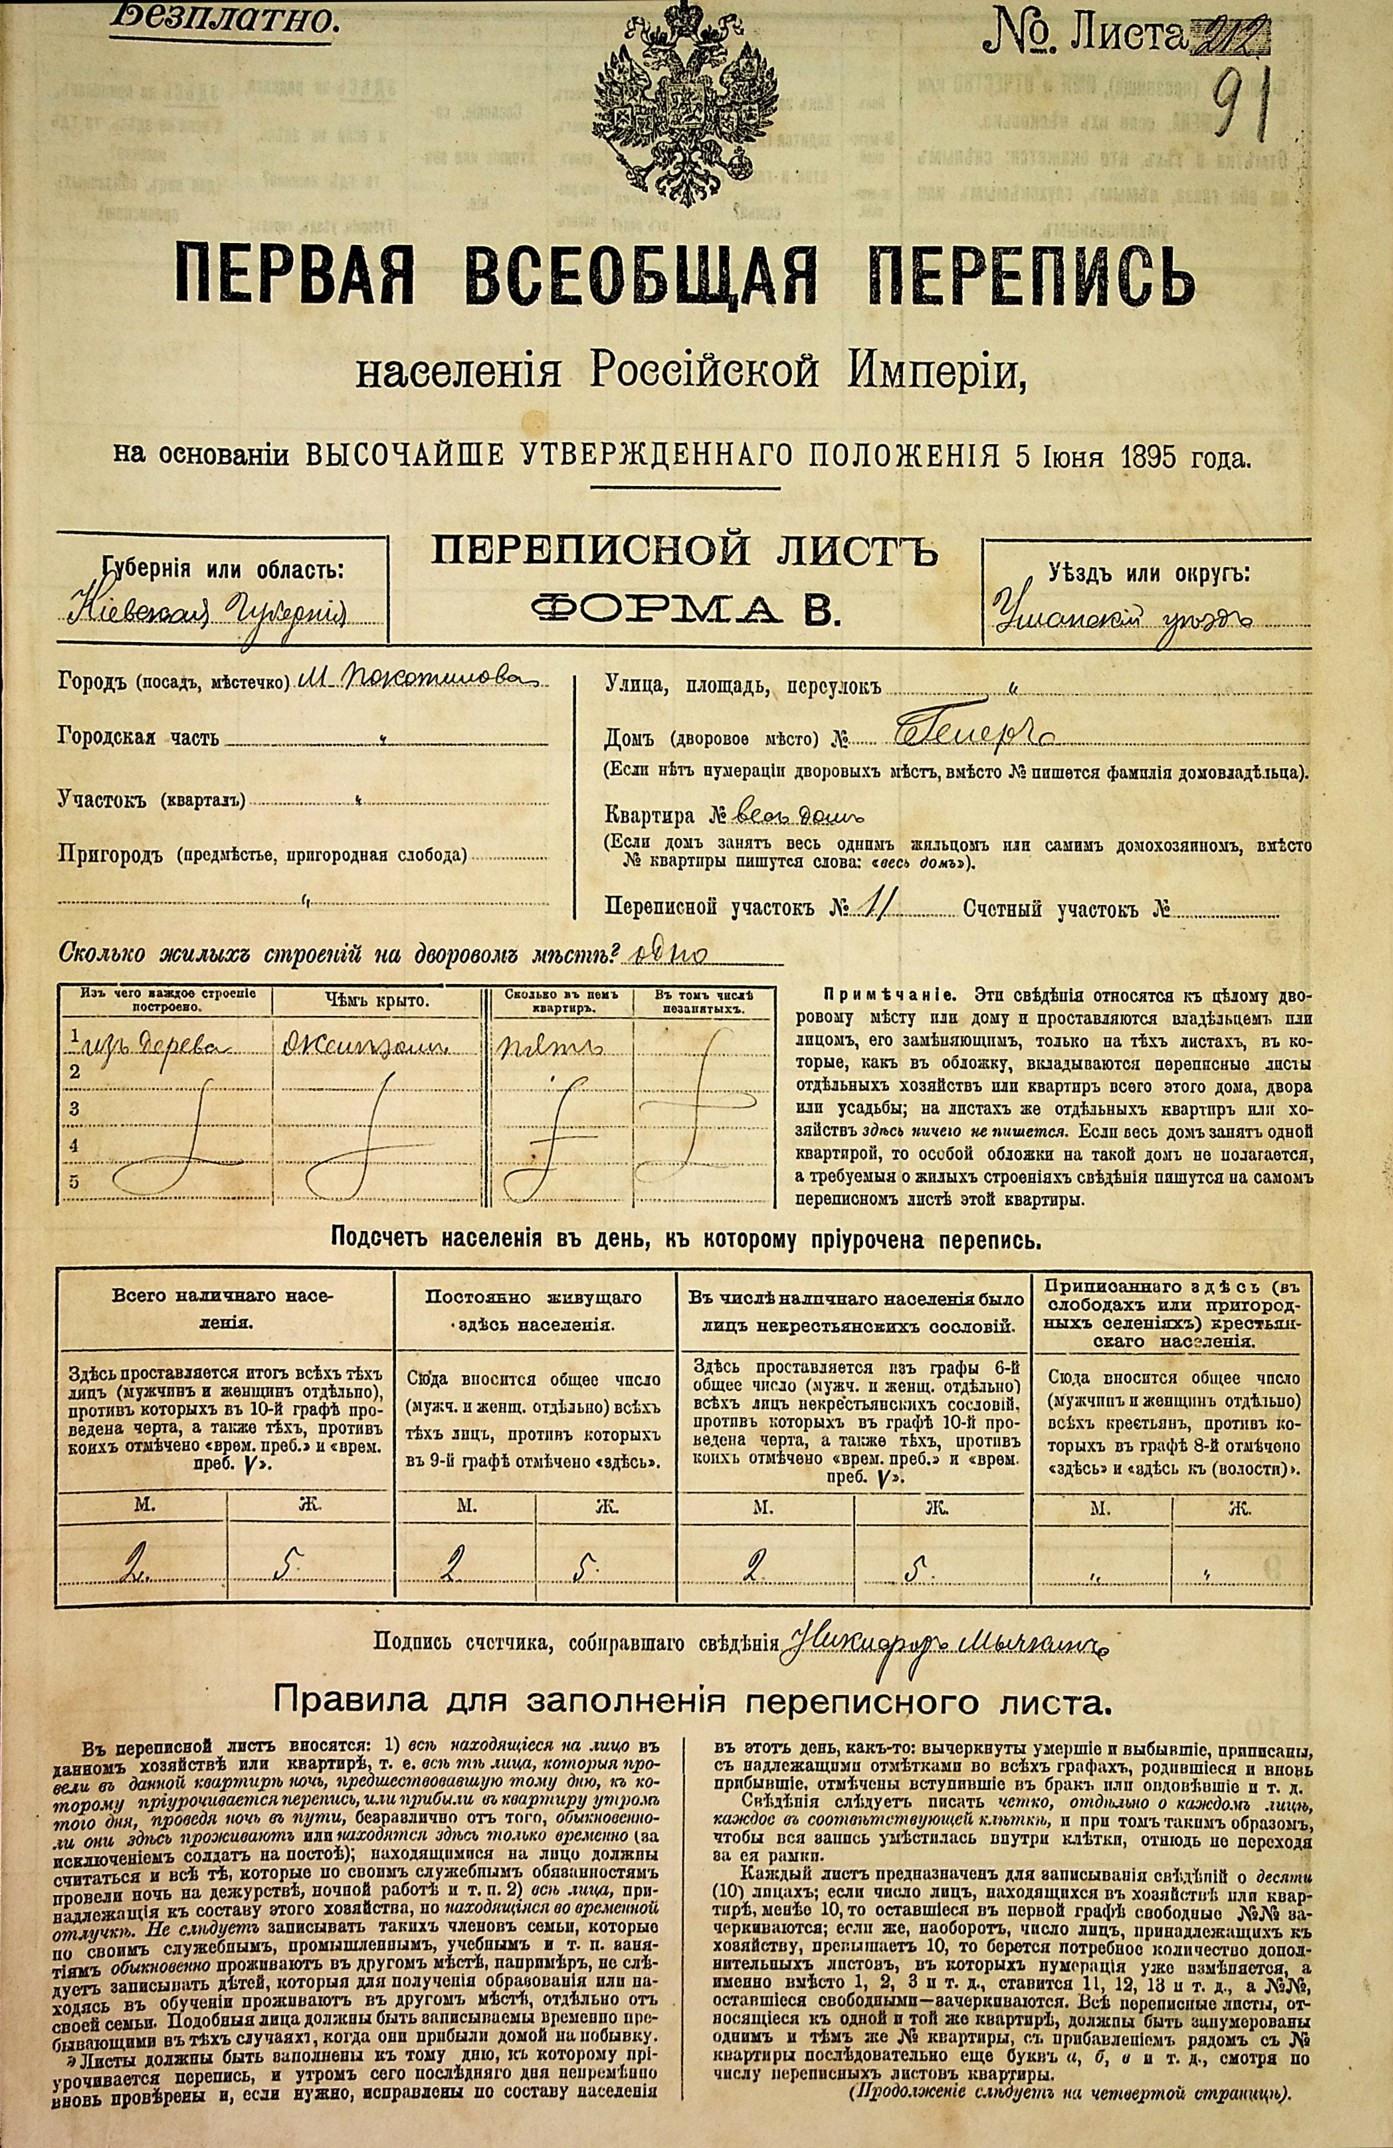 Безплатно.
№ Листа 212
91
ПЕРВАЯ ВСЕОБЩАЯ ПЕРЕПИСЬ
населенія Россійской Имперіи,
на основаніи ВЫСОЧАЙШЕ УТВЕРЖДЕННАГО ПОЛОЖЕНІЯ 5 Іюня 1895 года.
ПЕРЕПИСНОЙ ЛИСТЪ
ФОРМА В.
Губернія или область:
Кіевская Губернія
Уѣздъ или округъ:
Уманскій уѣздъ
Городъ (посадъ, мѣстечко) М Покотилова
Городская часть "
Участокъ (кварталъ) "
Пригородъ (предмѣстье, пригородная слобода)
"
Улица, площадь, переулокъ "
Домъ (дворовое мѣсто) №
(Если нѣтъ нумераціи дворовыхъ мѣстъ, вмѣсто № пишется фамилія домовладѣльца).
Квартира № весь домъ
(Если домъ занятъ весь однимъ жильцомъ или самимъ домохозяиномъ, вмѣсто
№ квартиры пишутся слова: «весь домъ»).
Переписной участокъ № 11 Счетный участокъ №
Сколько жилыхъ строеній на дворовомъ мѣстѣ? одно
Изъ чего каждое строеніе
построено.
Чѣмъ крыто.
Сколько въ немъ
квартиръ.
Въ томъ числѣ
незанятыхъ.
1 изъ дерева
пять
2
3
4
5
Примѣчаніе. Эти свѣдѣнія относятся къ цѣлому дво-
ровому мѣсту или дому и проставляются владѣльцемъ или
лицомъ, его замѣняющимъ, только на тѣхъ листахъ, въ ко-
торые, какъ въ обложку, вкладываются переписные листы
отдѣльныхъ хозяйствъ или квартиръ всего этого дома, двора
или усадьбы; на листахъ же отдѣльныхъ квартиръ или хо-
зяйствъ здѣсь ничего не пишется. Если весь домъ занятъ одной
квартирой, то особой обложки на такой домъ не полагается,
а требуемыя о жилыхъ строеніяхъ свѣдѣнія пишутся на самомъ
переписномъ листѣ этой квартиры.
Подсчетъ населенія въ день, къ которому пріурочена перепись.
Всего наличнаго насе-
ленія.
Здѣсь проставляется итогъ всѣхъ тѣхъ
лицъ (мужчинъ и женщинъ отдѣльно),
противъ которыхъ въ 10-й графѣ про-
ведена черта, а также тѣхъ, противъ
коихъ отмѣчено «врем. преб.» и «врем.
преб. V».
Постоянно живущаго
здѣсь населенія.
Сюда вносится общее число
(мужч. и женщ. отдѣльно) всѣхъ
тѣхъ лицъ, противъ которыхъ
въ 9-й графѣ отмѣчено «здѣсь».
Въ числѣ наличнаго населенія было
лицъ некрестьянскихъ сословій.
Здѣсь проставляется изъ графы 6-й
общее число (мужч. и женщ. отдѣльно)
всѣхъ лицъ некрестьянскихъ сословій,
противъ которыхъ въ графѣ 10-й про-
ведена черта, а также тѣхъ, противъ
коихъ отмѣчено «врем. преб.» и «врем.
преб. V».
Приписаннаго здѣсь (въ
слободахъ или пригород-
ныхъ селеніяхъ) крестьян-
скаго населенія.
Сюда вносится общее число
(мужчинъ и женщинъ отдѣльно)
всѣхъ крестьянъ, противъ ко-
торыхъ въ графѣ 8-й отмѣчено
«здѣсь» и «здѣсь къ (волости)».
М. Ж. М. Ж. М. Ж. М. Ж.
2 5 2 5 2 5 " "
Подпись счетчика, собиравшаго свѣдѣнія Никифоръ
Правила для заполненія переписного листа.
Въ переписной листъ вносятся: 1) всѣ находящіеся на лицо въ
данномъ хозяйствѣ или квартирѣ, т. е. всѣ тѣ лица, которыя про-
вели въ данной квартирѣ ночь, предшествовавшую тому дню, къ ко-
торому пріурочивается перепись, или прибыли въ квартиру утромъ
того дня, проведя ночь въ пути, безразлично отъ того, обыкновенно-
ли они здѣсь проживаютъ или находятся здѣсь только временно (за
исключеніемъ солдатъ на постоѣ); находящимися на лицо должны
считаться и всѣ тѣ, которые по своимъ служебнымъ обязанностямъ
провели ночь на дежурствѣ, ночной работѣ и т. п. 2) всѣ лица, при-
надлежащія къ составу этого хозяйства, но находящіяся во временной
отлучкѣ. Не слѣдуетъ записывать такихъ членовъ семьи, которые
по своимъ служебнымъ, промышленнымъ, учебнымъ и т. п. заня-
тіямъ обыкновенно проживаютъ въ другомъ мѣстѣ, напримѣръ, не слѣ-
дуетъ записывать дѣтей, которыя для полученія образованія или на-
ходясь въ обученіи проживаютъ въ другомъ мѣстѣ, отдѣльно отъ
своей семьи. Подобныя лица должны быть записываемы временно пре-
бывающими въ тѣхъ случаяхъ, когда они прибыли домой на побывку.
Листы должны быть заполнены къ тому дню, къ которому прі-
урочивается перепись, и утромъ сего послѣдняго дня непремѣнно
вновь провѣрены и, если нужно, исправлены по составу населенія
въ этотъ день, какъ-то: вычеркнуты умершіе и выбывшіе, приписаны,
съ надлежащими отмѣтками во всѣхъ графахъ, родившіеся и вновь
прибывшіе, отмѣчены вступившіе въ бракъ или овдовѣвшіе и т. д.
Свѣдѣнія слѣдуетъ писать четко, отдѣльно о каждомъ лицѣ,
каждое въ соотвѣтствующей клѣткѣ, и при томъ такимъ образомъ,
чтобы вся запись умѣстилась внутри клѣтки, отнюдь не переходя
за ея рамки.
Каждый листъ предназначенъ для записыванія свѣдѣній о десяти
(10) лицахъ; если число лицъ, находящихся въ хозяйствѣ или квар-
тирѣ, менѣе 10, то оставшіеся въ первой графѣ свободные №№ за-
черкиваются; если же, наоборотъ, число лицъ, принадлежащихъ къ
хозяйству, превышаетъ 10, то берется потребное количество допол-
нительныхъ листовъ, въ которыхъ нумерація уже измѣняется, а
именно вмѣсто 1, 2, 3 и т. д., ставится 11, 12, 13 и т. д., а №№,
оставшіеся свободными—зачеркиваются. Всѣ переписные листы, от-
носящіеся къ одной и той же квартирѣ, должны быть занумерованы
однимъ и тѣмъ же № квартиры, съ прибавленіемъ рядомъ съ №
квартиры послѣдовательно еще буквъ а, б, в и т. д., смотря по
числу переписныхъ листовъ квартиры.
(Продолженіе слѣдуетъ на четвертой страницѣ).